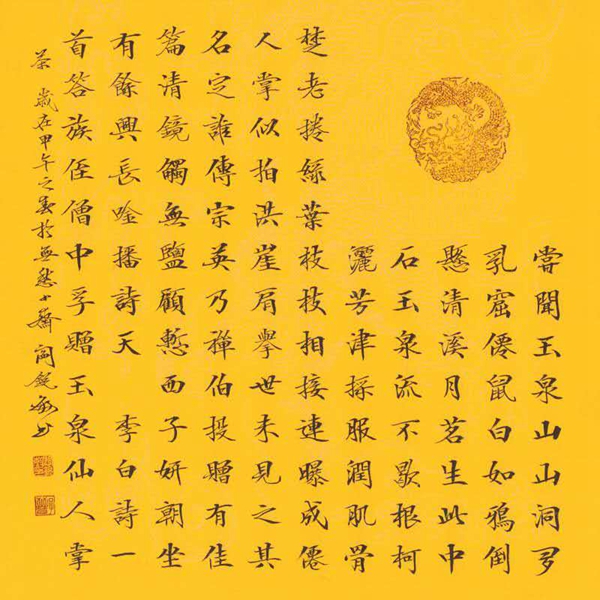 嘗聞玉泉山山洞多
乳窟僊鼠白如鴉倒
懸清溪月茗生此中
石玉泉流不歇根柯
灑芳津採服潤肌骨
楚老捲綠葉枝枝相接連曝成僊
人掌似拍洪崖肩舉世未見之其
名定誰傳宗英乃禪伯投贈有佳
篇清鏡觸無鹽顧慙西子妍朝坐
有餘興長唫播詩天 李白詩一
首答族侄僧中孚贈玉泉仙人掌
茶 歲在甲午之春於無愁小齋 書